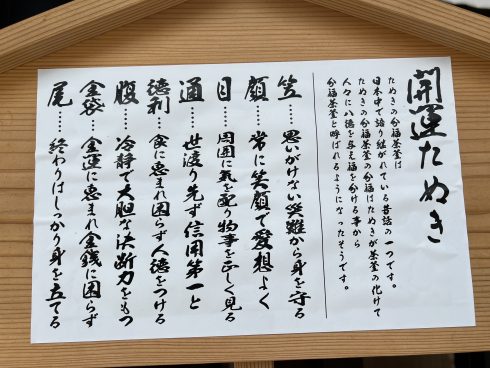 開運たぬき
たぬきの分福茶釜は
日本中で語り継がれている昔話の一つです。
たぬきの分福茶釜の分福はたぬきが茶釜の化けて
人々に八徳を与え福を分ける事から
分福茶釜と呼ばれるようになったそうです。
笠……思いがけない災難から身を守る
顔……常に笑顔で愛想よく
目……周囲に気を配り物事を正しく見る
通……世渡り先ず信用第一と
徳利……食に恵まれ困らず人徳をつける
腹……冷静で大胆な決断力をもつ
金袋……金運に恵まれ金銭に困らず
尾……終わりはしっかり身を立てる